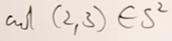 and (2,3) ∈ S²